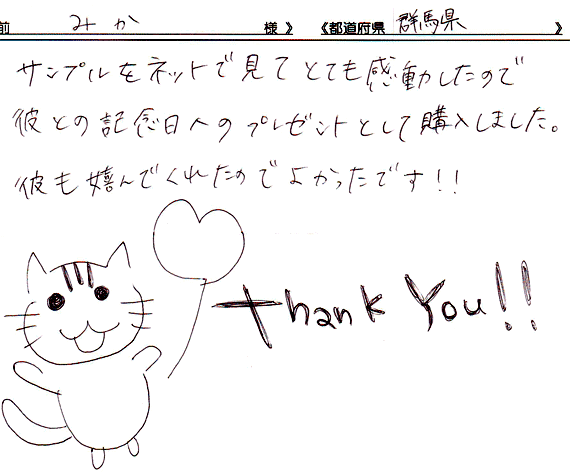 前 みか 様》 《都道府県 群馬県 》
サンプルをネットで見てとても感動したので
彼との記念日へのプレゼントとして購入しました。
彼も嬉んでくれたのでよかったです!!
thank You!!